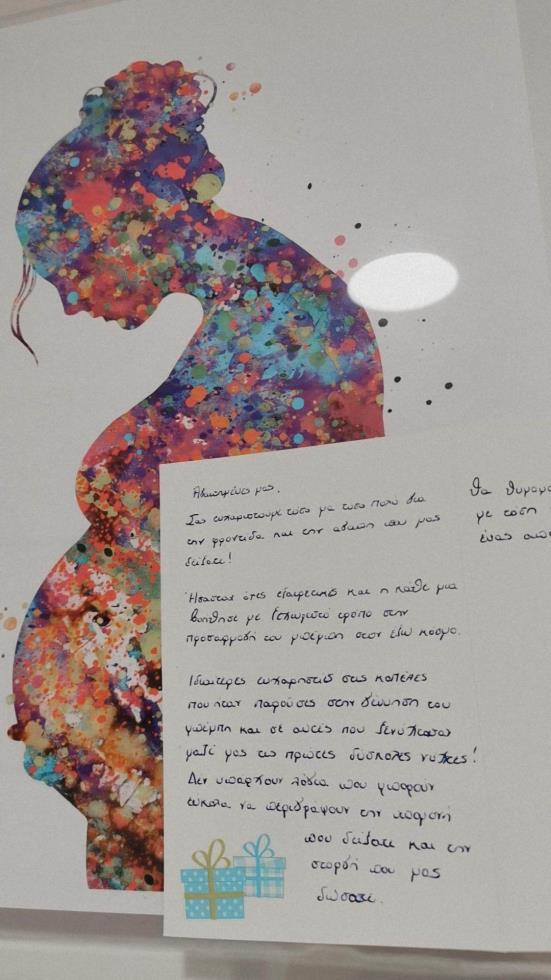 Αγαπημένες μας,
Σας ευχαριστούμε τόσο μα τόσο πολύ για
την φροντίδα και την αγάπη που μας
δείξατε!
Ήσασταν όλες εξαιρετικές και η κάθε μια
βοήθησε με ξεχωριστό τρόπο στην
προσαρμογή του μπέμπη στον έξω κόσμο.
Ιδιαίτερες ευχαριστίες στις κοπέλες
που ήταν παρούσες στην γέννηση του
μπέμπη και σε αυτές που ξενύχτισαν
μαζί μας τις πρώτες δύσκολες νύχτες!
Δεν υπάρχουν λόγια που μπορούν
εύκολα να περιγράψουν την υπομονή
που δείξατε και την
στοργή που μας
δώσατε.
θα θυμόμα
με τόση
ένας